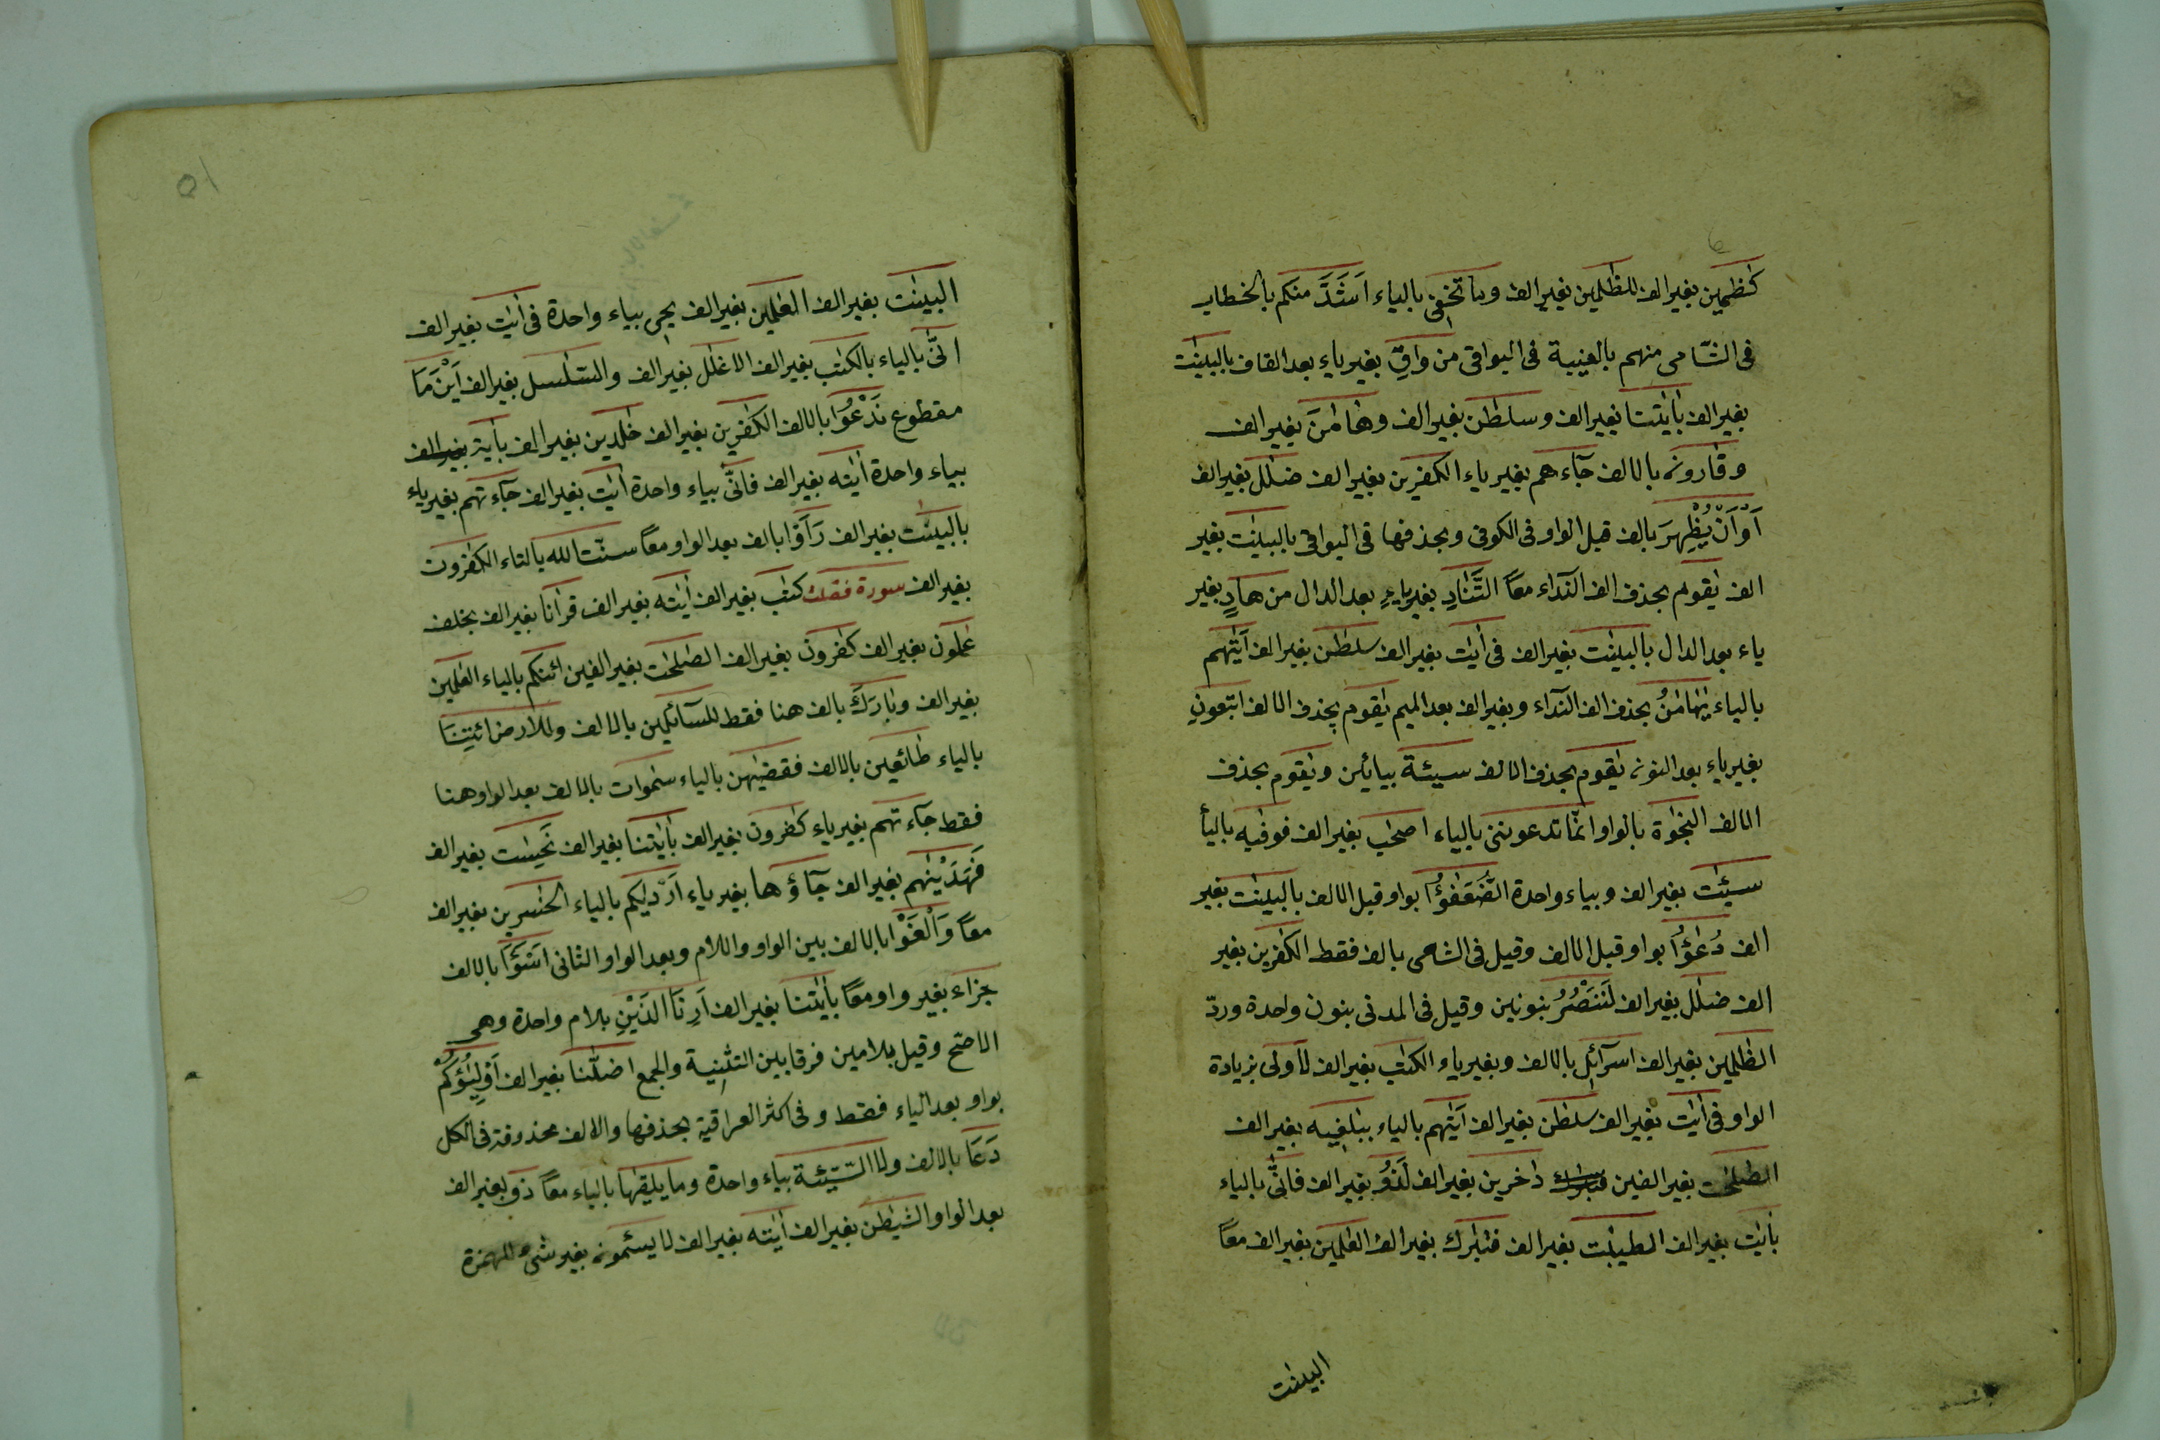 كٰظمين بغير الف للظٰلمين بغير الف وما تخفى بالياء اَشَدَّ منكم بالخطاب
فى الشّامى منهم بالغيبة فى البواقى من واقٍ بغير ياء بعد القاف بالبينٰت
بغير الف بأيٰتنا بغير الف وسلطٰن بغير الف وهٰامٰنَ بغير الف
وقٰارون بالالف جآءهم بغير ياء الكٰفرين بغير الف ضلٰل بغير الف
اَوْ اَنْ يُظْهِرَ بالف قبل الواو فى الكوفى وبحذفها فى البواقى بالبينٰت بغير
الف يٰقوم بحذف الف النّداء معًا التَّنٰادِ بغير ياءٍ بعد الدال من هادٍ بغير
ياء بعد الدال بالبينٰت بغير الف فى اٰيٰت بغير الف سلطٰن بغير الف اَتٰيهم
بالياء يٰهٰامٰنُ بحذف الف النّداء وبغير الف بعد الميم يٰقوم بحذف الالف اتبعونِ
بغير ياء بعد النون يٰقوم بحذف الالف سيئة بيائين ويٰقوم بحذف
الالف النجٰوة بالواو انّما تدعوننى بالياء اصحٰب بغير الف فوقٰيه باليأ
سيئٰت بغير الف وبياء واحدة الضُّعَفٰؤُا بواو قبل الالف بالبينٰت بغير
الف دُعٰؤُا بواو قبل الالف وقيل فى الشامى بالف فقط الكٰفرين بغير
الف ضلٰل بغير الف لَنَنْصُرُ بنونين وقيل فى المدنى بنون واحدة وردّ
الظٰلمين بغير الف اسرآئل بالالف وبغير ياء الكتٰب بغير الف لأولى بزيادة
الواو فى اٰيٰت بغير الف سلطٰن بغير الف اَتٰيهم بالياء ببٰلغيه بغير الف
الصٰلحٰت بغير الفين دٰخرين بغير الف لَذُو بغير الف فانّٰى بالياء
بأيٰت بغير الف الطيبٰت بغير الف فتبٰرك بغير الف العٰلمين بغير الف معًا
البينٰت
٥١
البينٰت بغير الف العٰلمين بغير الف يحى بياء واحدة فى اٰيٰت بغير الف
انّٰى بالياء بالكتٰب بغير الف الاغلٰل بغير الف والسّلٰسل بغير الف اَيْنَ مَا
مقطوع نَدْعُوا بالالف الكٰفرين بغير الف خٰلدين بغير الف بأية بغير الف
بياء واحدة اٰيٰته بغير الف فاىَّ بياء واحدة اٰيٰت بغير الف جآءتهم بغير ياء
بالبينٰت بغير الف رَاَوْا بالف بعد الواو معًا سنّت الله بالتاء الكٰفرون
بغير الف سورة فصلت كتٰب بغير الف اٰيٰته بغير الف قرأنا بغير الف بخلف
عٰملون بغير الف كٰفرون بغير الف الصٰلحٰت بغير الفين ائنكم بالياء العٰلمين
بغير الف وبٰارَكَ بالف هنا فقط للسآئلين بالالف وللارض ائتِيَا
بالياء طائعين بالالف فقضٰيهن بالياء سمٰوات بالالف بعد الواو هنا
فقط جآءتهم بغير ياء كٰفرون بغير الف بأيٰتنا بغير الف نَحِسٰت بغير الف
فَهَدَيْنٰهم بغير الف جآؤها بغير ياء اَرْدٰيكم بالياء الخٰسرين بغير الف
معًا وَالْغَوْا بالالف بين الواو واللام وبعد الواو الثانى اسَوَأ بالالف
جزاء بغير واو معًا بأيٰتنا بغير الف اَرِنَا الذَيْنِ بلام واحدة وهى
الاصح وقيل بلامين فرقا بين التثنية والجمع اضلّٰنا بغير الف اَوْلِيٰؤُكُمْ
بواو بعد الياء فقط وفى اكثر العراقية بحذفها والالف محذوفة فى الكل
دَعَا بالالف ولا السّيّئة بياء واحدة وما يلقٰيها بالياء معًا ذو بغير الف
بعد الواو الشيطٰن بغير الف اٰيٰته بغير الف لا يسئمون بغير شئ للهمزة